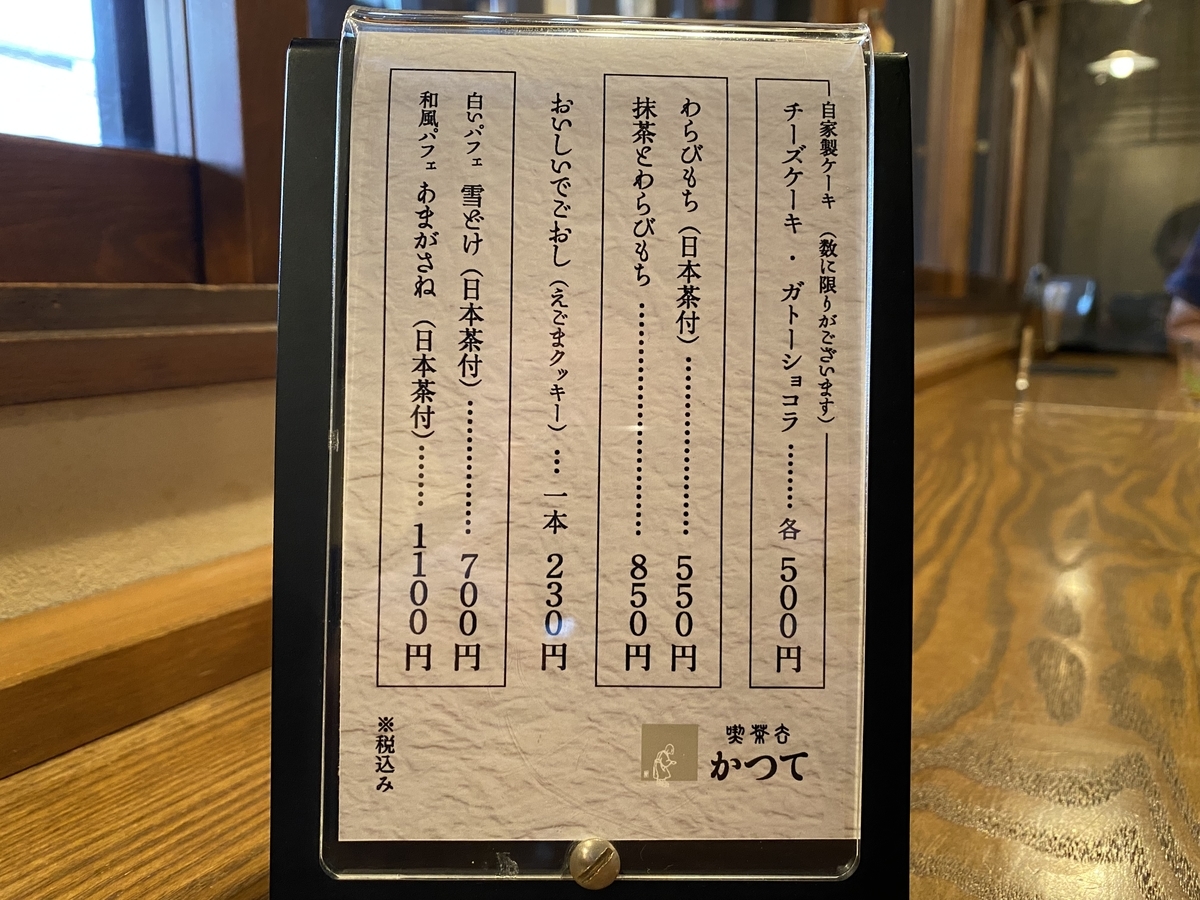 自家製ケーキ(数に限りがございます)
チーズケーキ・ガトーショコラ………各500円
わらびもち(日本茶付)………………550円
抹茶とわらびもち……………………850円
おいしいでごおし(えごまクッキー)…一本230円
白いパフェ 雪どけ(日本茶付)……………700円
和風パフェ あまがさね(日本茶付)………1100円
喫茶去
かつて
※税込み